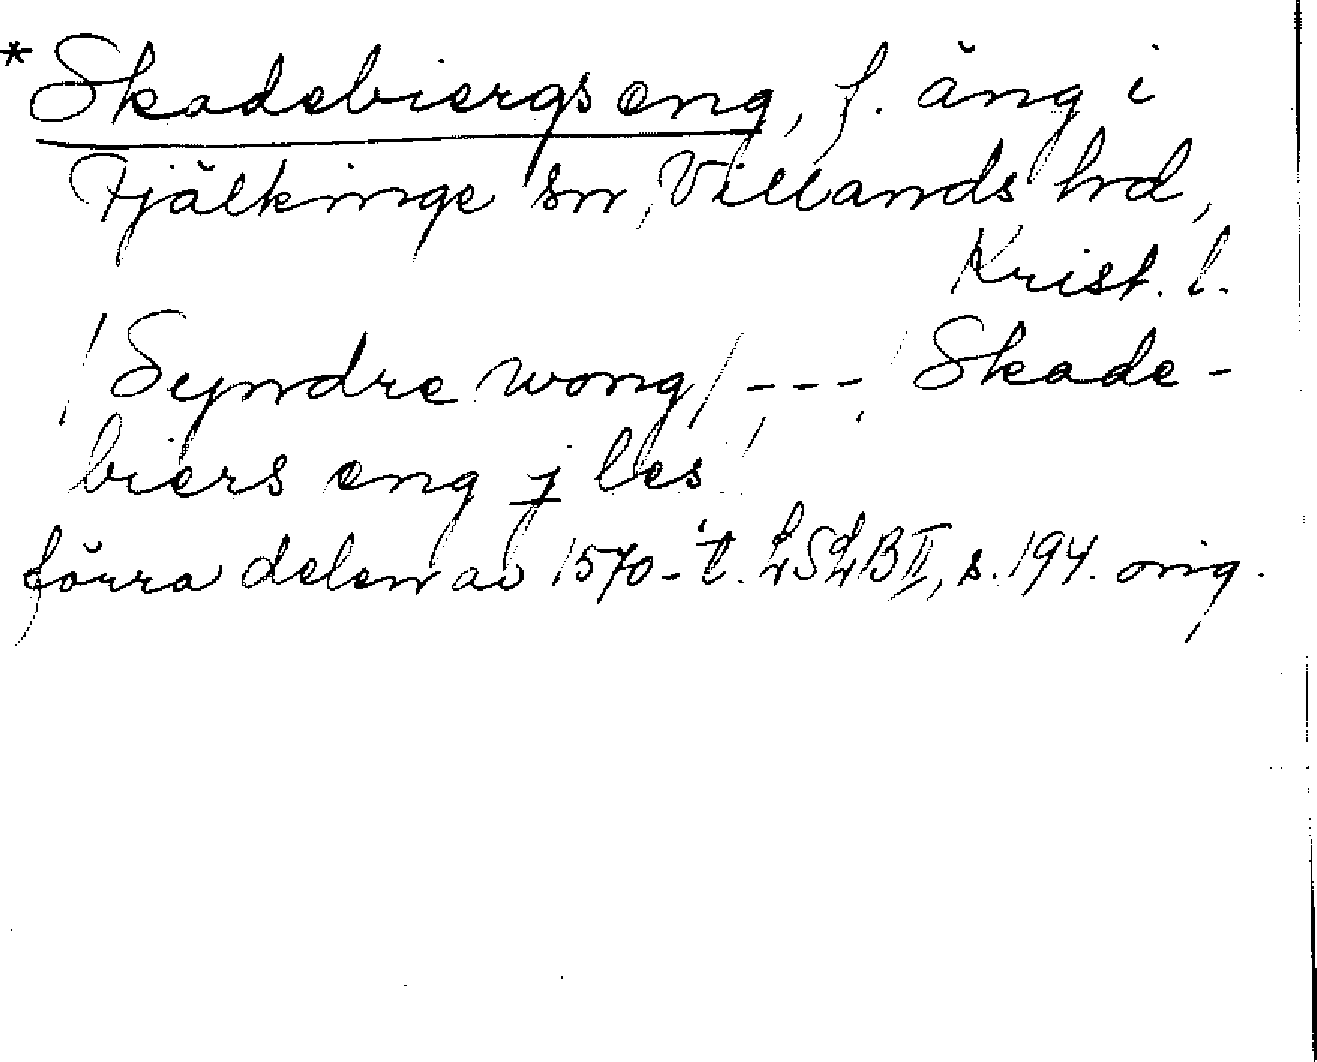 * Skadebiergs eng, f. äng i
Fjälkinge sn, Villands hd,
Krist. l.
/Syndre wong/ --- /Skade-
biers eng j les/
förra delen av 1570-t. LSLB II, s. 194. orig.